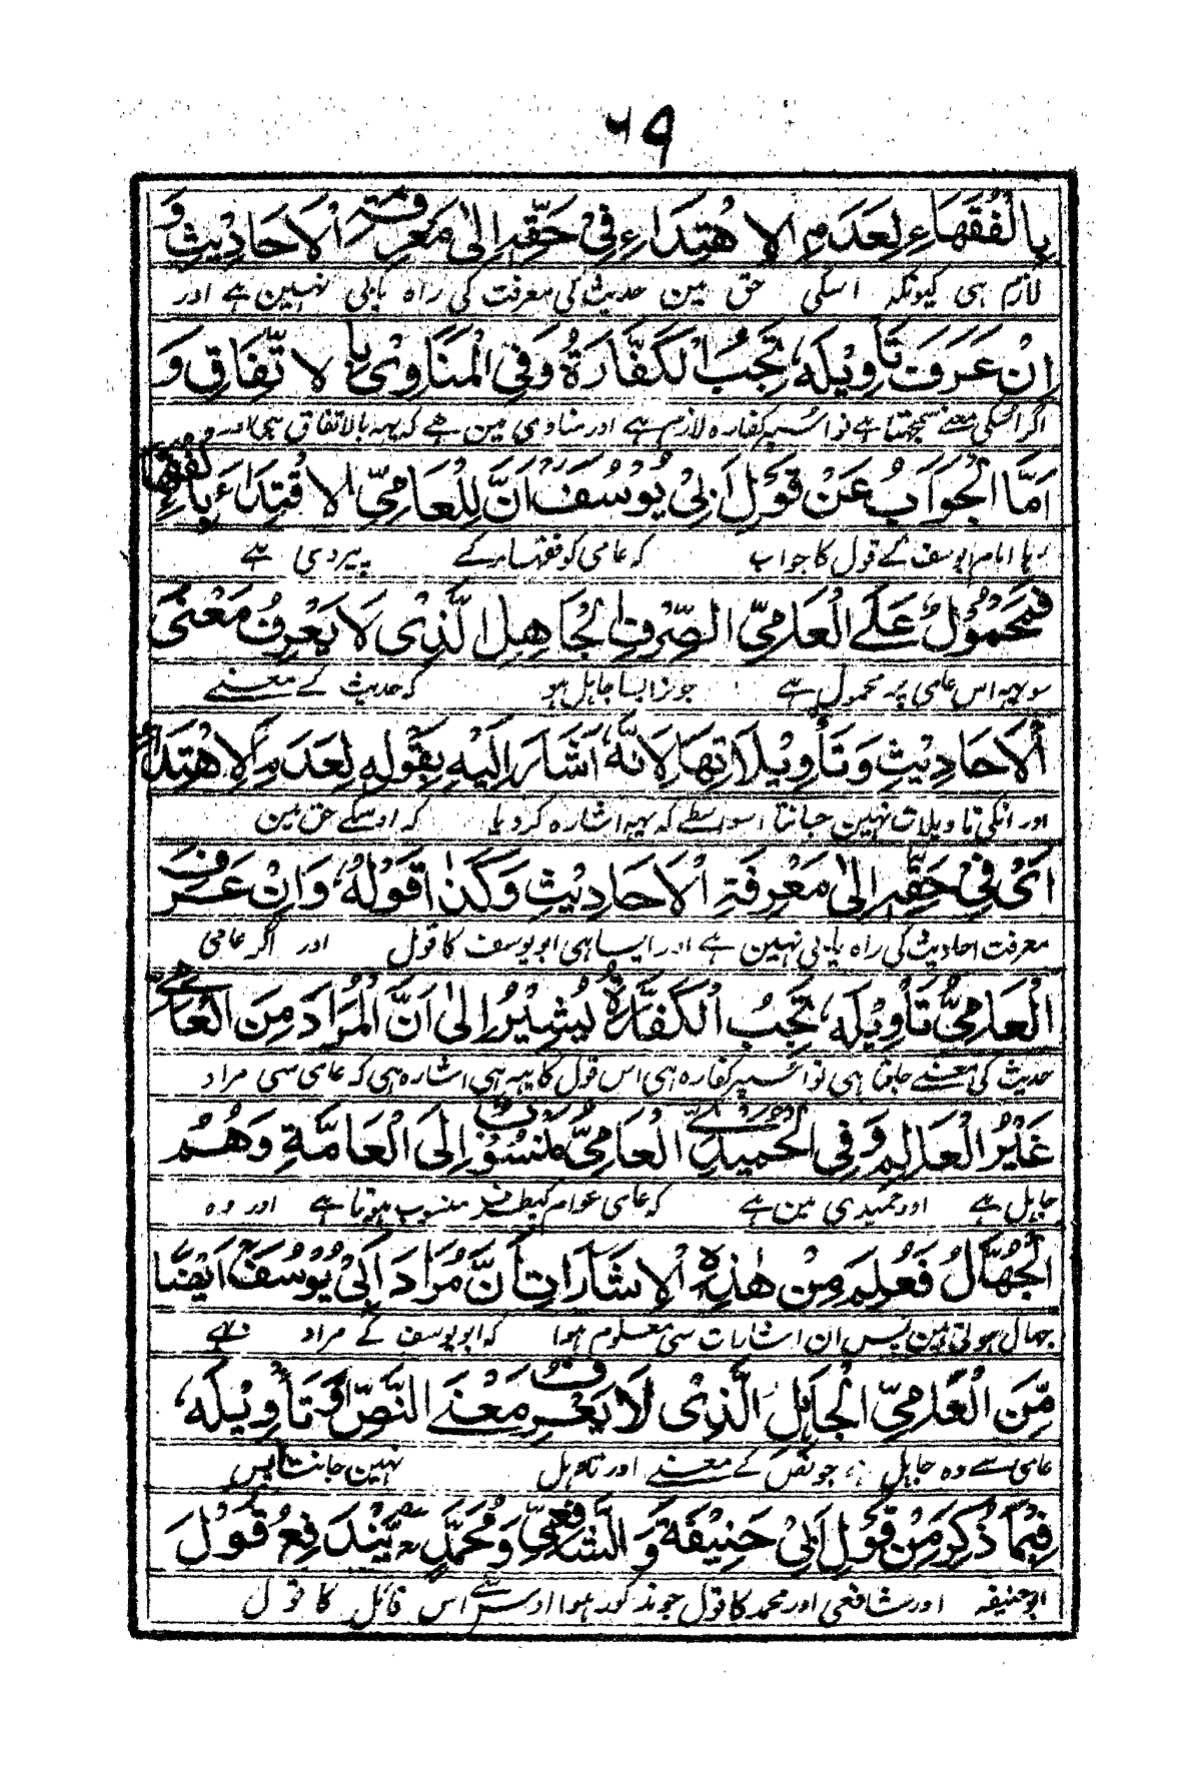 ۶۹
بِالْفُقَهَاءِ لِعَدَمِ الِاهْتِدَاءِ فِيْ حَقِّهٖ اِلٰى مَعْرِفَةِ الْاَحَادِيْثِ وَ
لازم ہی کیونکہ اسکی حق مین حدیث کی معرفت کی راہ یابی نہین ہے اور
اِنْ عَرَفَ تَأْوِيْلَهٗ تَجِبُ الْكَفَّارَةُ وَفِي الْمَنَاوِيْ بِالِاتِّفَاقِ وَ
اگر اسکی معنے سمجھتا ہے تو اسپر کفارہ لازم ہے اور مناوی مین ہے کہ یہہ بالاتفاق ہی اور
اَمَّا الْجَوَابُ عَنْ قَوْلِ اَبِيْ يُوْسُفَ اَنَّ لِلْعَامِيِّ الِاقْتِدَاءَ بِالْفُقَهَاءِ
رہا امام ابو یوسف کے قول کا جواب کہ عامی کو فقہا کے پیروی ہے
فَمَحْمُوْلٌ عَلَى الْعَامِيِّ الصِّرْفِ الْجَاهِلِ الَّذِيْ لَا يَعْرِفُ مَعْنَى
سو یہہ اس عامی پر محمول ہے جو نرا ایسا جاہل ہو کہ حدیث کے معنے
الْاَحَادِيْثِ وَتَأْوِيْلَاتِهَا لِاَنَّهٗ اَشَارَ اِلَيْهِ بِقَوْلِهٖ لِعَدَمِ الِاهْتِدَاءِ
اور انکی تاویلات نہین جانتا اسواسطے کہ یہہ اشارہ کر دیا کہ اوسکے حق مین
اَيْ فِيْ حَقِّهٖ اِلٰى مَعْرِفَةِ الْاَحَادِيْثِ وَكَذَا قَوْلُهٗ وَاِنْ عَرَفَ
معرفت احادیث کی راہ یابی نہین ہے اور ایسا ہی ابو یوسف کا قول اور اگر عامی
الْعَامِيُّ تَأْوِيْلَهٗ تَجِبُ الْكَفَّارَةُ يُشِيْرُ اِلٰى اَنَّ الْمُرَادَ مِنَ الْعَامِيِّ
حدیث کی معنے جانتا ہی تو اسپر کفارہ ہی اس قول کا یہہ ہی اشارہ ہی کہ عامی سی مراد
غَيْرُ الْعَالِمِ وَفِي الْحَمِيْدِيِّ الْعَامِيُّ مَنْسُوْبٌ اِلَى الْعَامَّةِ وَهُمْ
جاہل ہے اور حمیدی مین ہے کہ عامی عوام کیطرف منسوب ہوتا ہے اور وہ
الْجُهَّالُ فَعُلِمَ مِنْ هٰذِهِ الْاِشَارَاتِ اَنَّ مُرَادَ اَبِيْ يُوْسُفَ اَيْضًا
جہال ہوتی ہین پس ان اشارات سی معلوم ہوا کہ ابو یوسف کے مراد
مِنَ الْعَامِيِّ الْجَاهِلُ الَّذِيْ لَا يَعْرِفُ مَعْنَى النَّصِّ وَتَأْوِيْلَهٗ
عامی سے وہ جاہل ہے جو نص کے معنے اور تاویل نہین جانتا پس
فِيْمَا ذُكِرَ مِنْ قَوْلِ اَبِيْ حَنِيْفَةَ وَالشَّافِعِيِّ وَمُحَمَّدٍ يَنْدَفِعُ قَوْلَ
ابو حنیفہ اور شافعی اور محمد کا قول جو مذکور ہوا اوس سے اس قائل کا قول